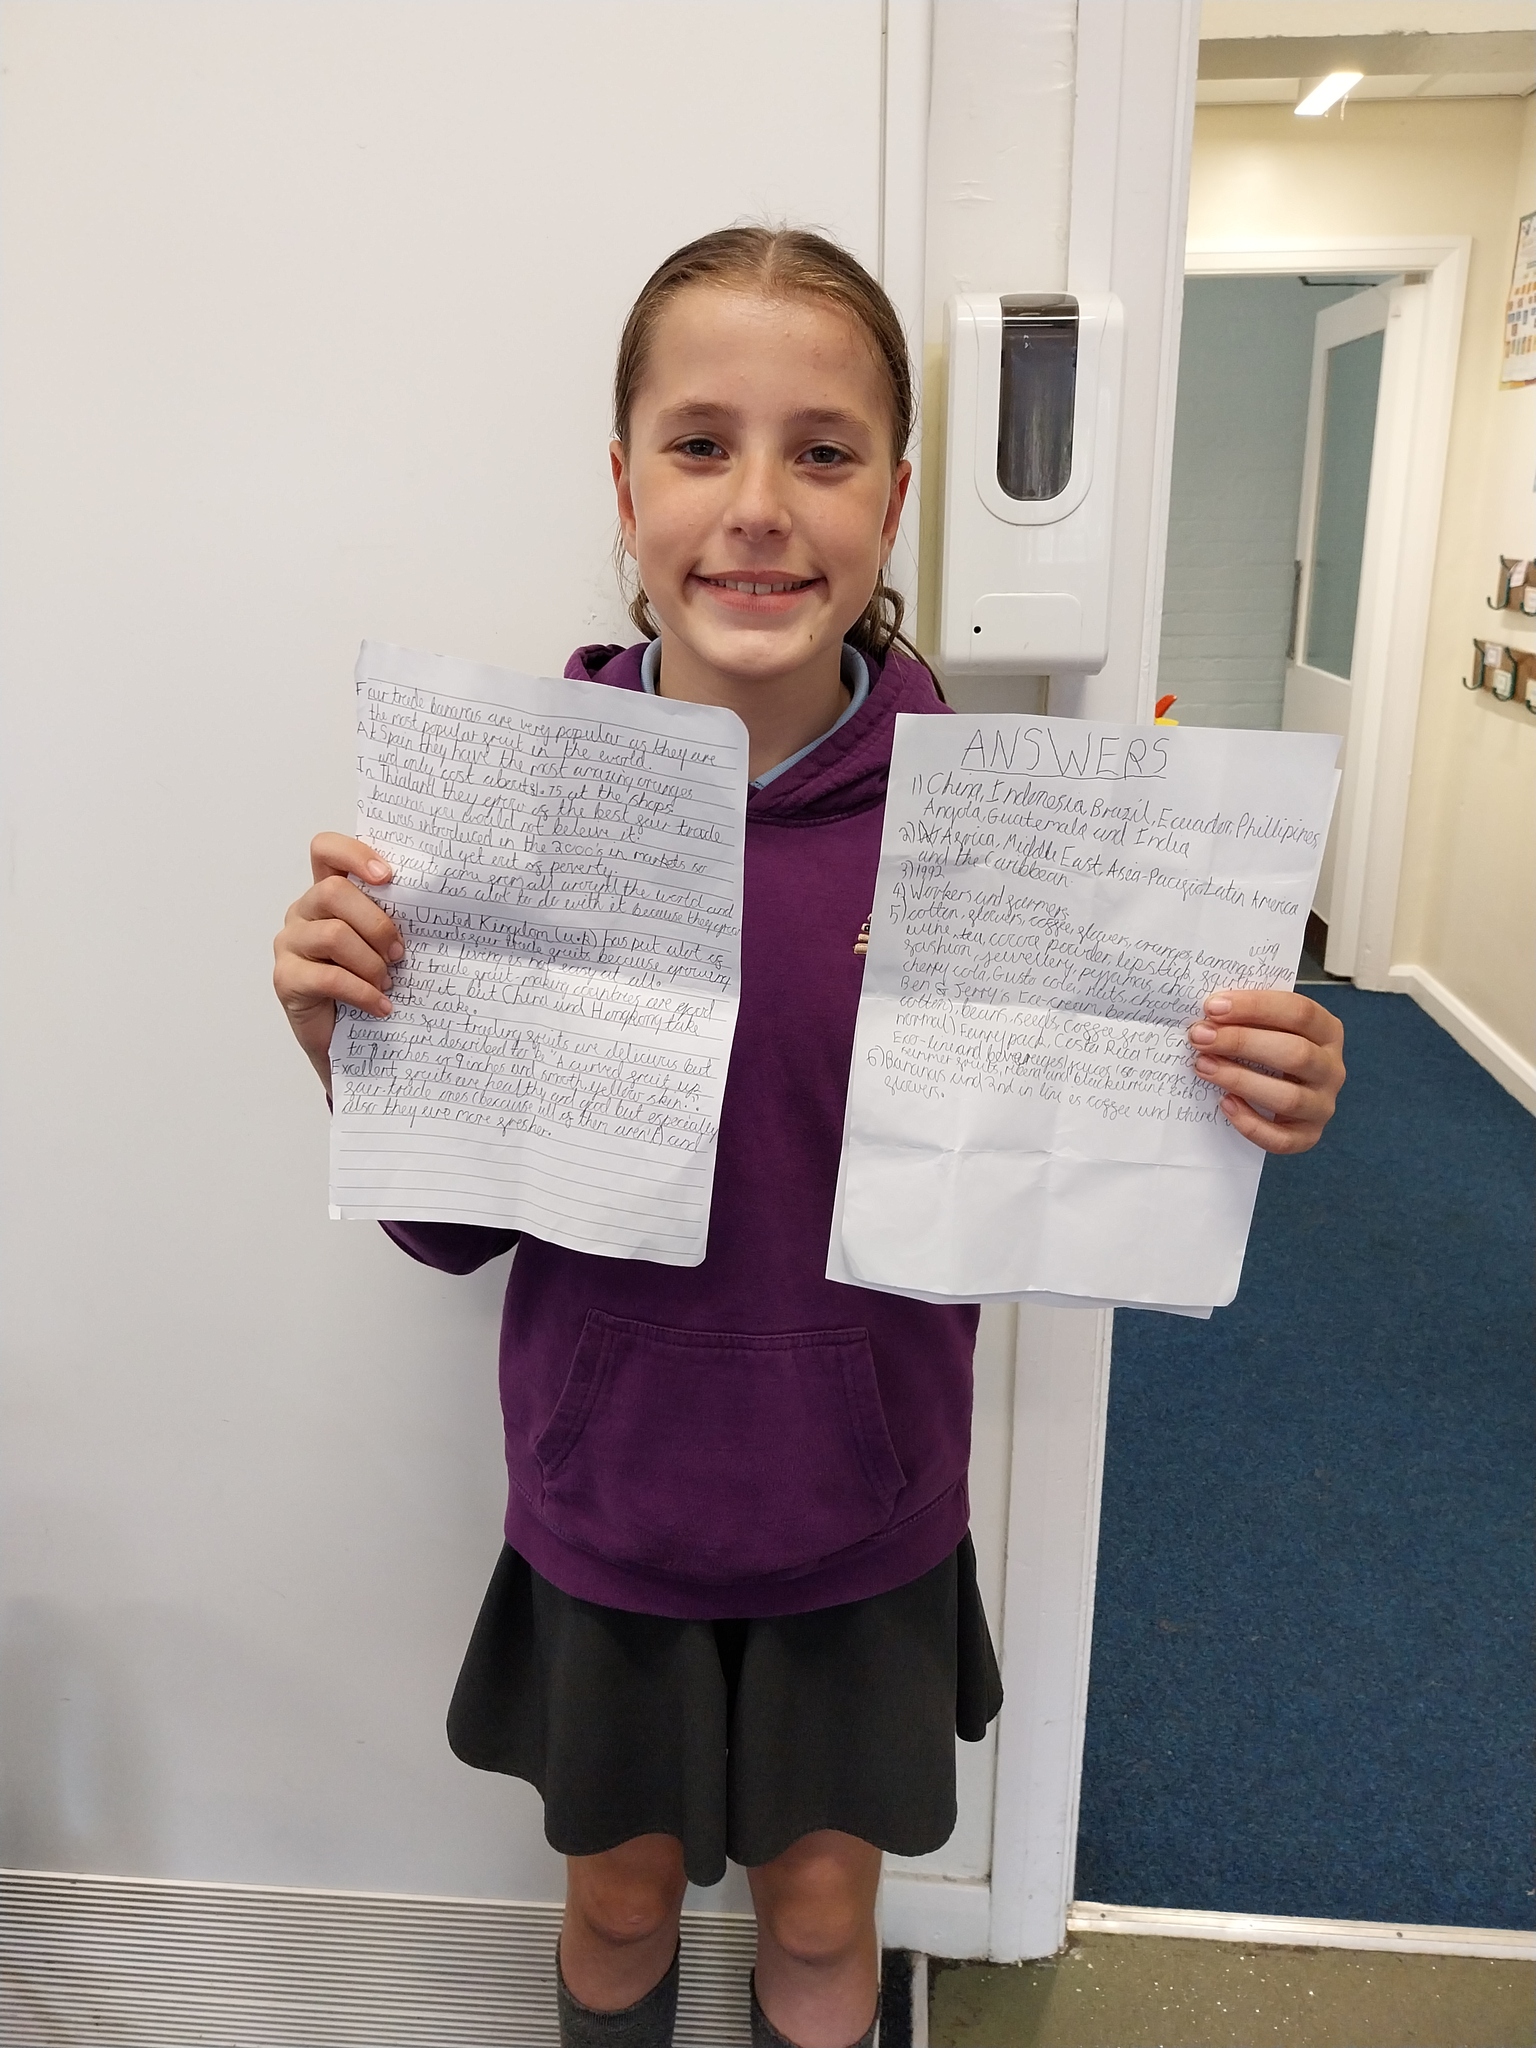 Fair trade bananas are very popular as they are
the most popular fruit in the world.
At Spain they have the most amazing oranges
only cost about 75 at the shops
In Thialand they grow of the best fair trade
bananas you would not beleive it.
was introduced in the 2000's in markets so
farmers could get out of poverty.
fruits come from all around the world and
trade has alot to do with it because they
the United Kingdom (u.k) has put alot of
towards fair trade fruits because growing
a living is not easy at all.
fair trade fruit-making countries are good
making it, but China and Hongkong take
cake.
Delicious fair-trading fruits are delicious but
bananas are described to be "A curved fruit up
to inches or 9 inches and smooth yellow skin.."
Excellent fruits are healthy and good but especially
fair-trade ones (because all of them aren't) and
also they are more fresher.
ANSWERS
1) China, Indonesia, Brazil, Ecuador, Phillipines
Angola, Guatemala and India
2) Africa, Middle East, Asia-Pacific, Latin America
and the Caribbean.
3) 1992
4) Workers and farmers
5) cotton, flowers, coffee, flowers, oranges, bananas, sugar, icing
wine, tea, cocoa powder, lipstick,
fashion, jewellery, pyjamas,
cherry cola, Gusto cola, Nuts, chocolate
Ben & Jerry's Ice-cream, bedding
cotton), bean, seeds, coffee from
normal) Fairy pack, Costa Rica
Eco-Linnard beverages/juices orange
summer fruits, and blackcurrant
6) Bananas and 2nd in line is coffee and third
flowers.